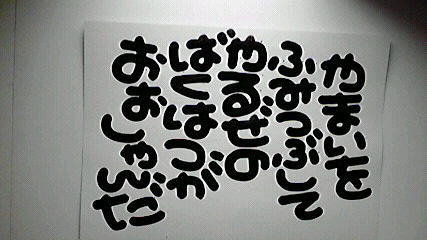 やまいを
ふみつぶして
やるぜの
ばくはつが
おおしゃんだ